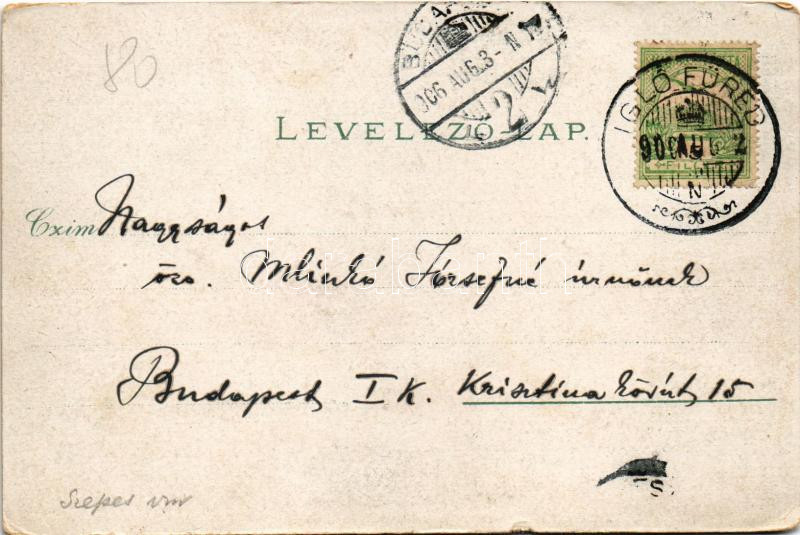 80
BUDAPEST
906 AUG. 3 - N
2
IGLÓ FÜRED
906 AUG 2
N
LEVELEZŐ-LAP.
Czim Nagyságos
özv. Mlinkó Józsefné úrnőnek
Budapest I K. Krisztina körút 15
Szepes vm